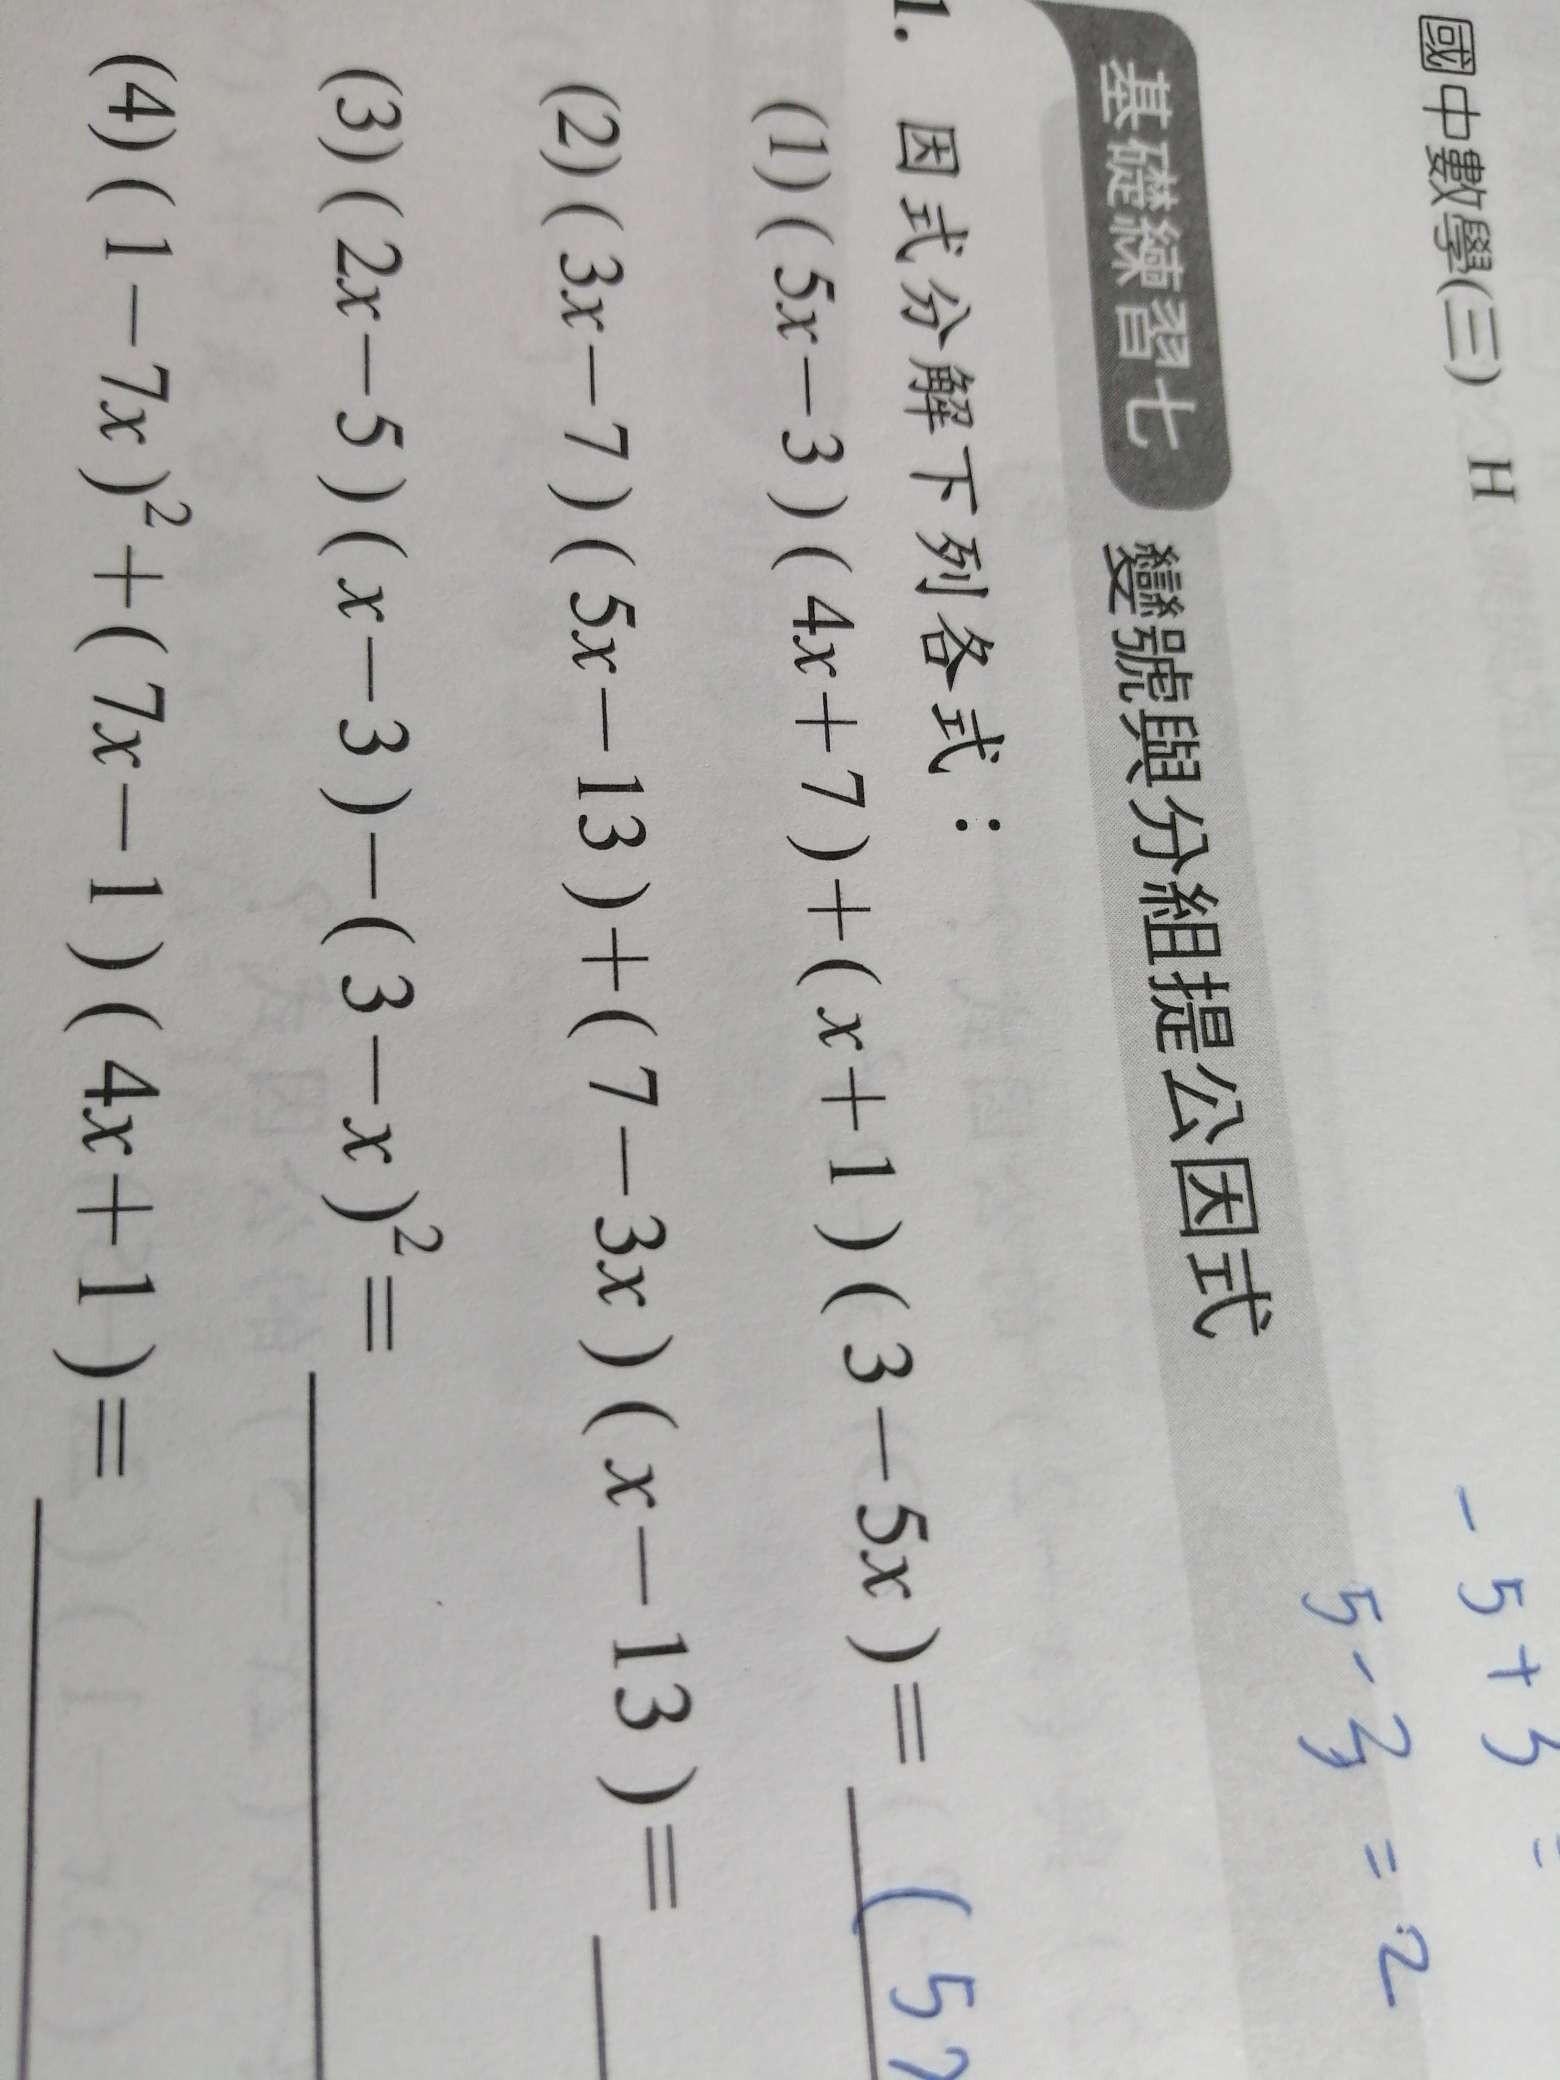 國中數學(三) H
- 5 + 3 =
5 - 3 = 2
基礎練習七 變號與分組提公因式
1. 因式分解下列各式：
(1) ( 5x－3 ) ( 4x＋7 )＋( x＋1 ) ( 3－5x )＝ ( 5x
(2) ( 3x－7 ) ( 5x－13 )＋( 7－3x ) ( x－13 )＝
(3) ( 2x－5 ) ( x－3 )－( 3－x )²＝
(4) ( 1－7x )²＋( 7x－1 ) ( 4x＋1 )＝